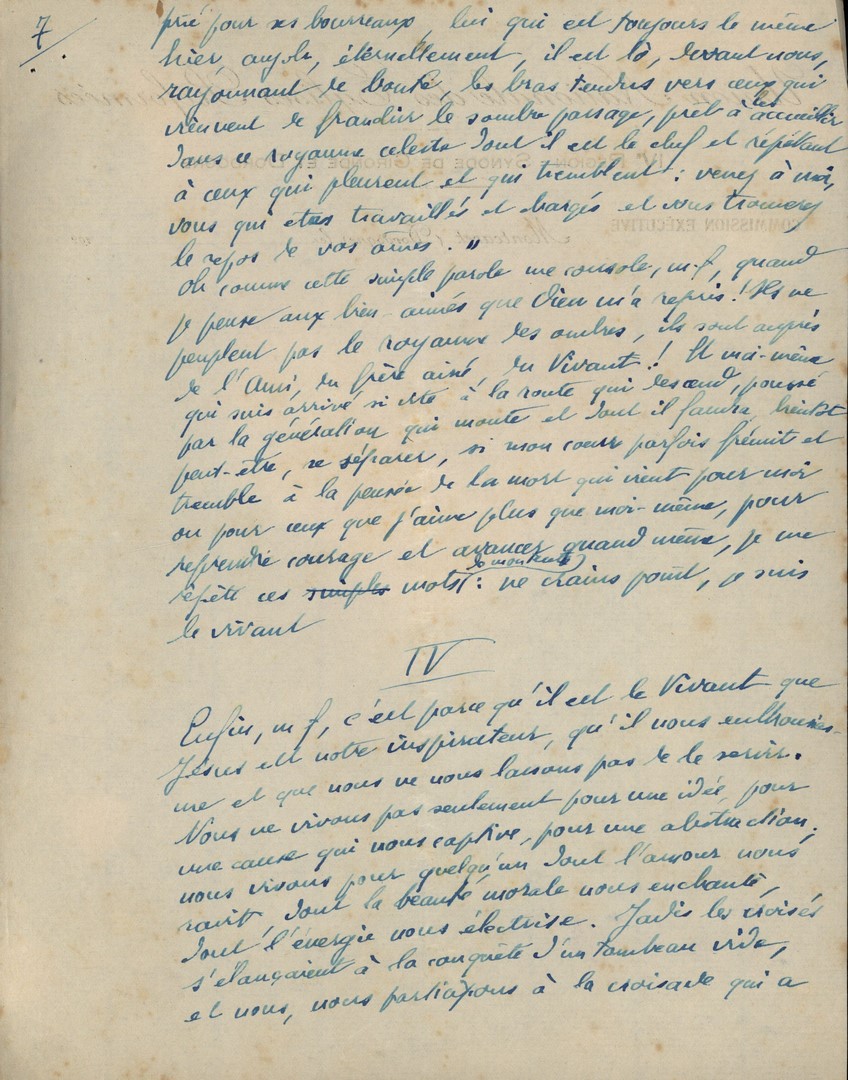 7
prié pour ses bourreaux, lui qui est toujours le même
hier, aujds, éternellement, il est là, devant nous,
rayonnant de bonté, les bras tendus vers ceux qui
viennent de franchir le sombre passage, prêt à les accueillir
dans ce royaume celeste dont il est le chef et répétant
à ceux qui pleurent et qui tremblent : venez à moi,
vous qui etes travaillés et chargés et vous trouverez
le repos de vos âmes. "
Oh comme cette simple parole me console, m.f, quand
je pense aux bien-aimés que Dieu m'a repris ! Ils ne
peuplent pas le royaume des ombres, ils sont auprès
de l'Ami, du frère ainé, du Vivant ! Et moi-même
qui suis arrivé si vite à la route qui descend, poussé
par la génération qui monte et dont il faudra, bientôt
peut-être, se séparer, si mon coeur parfois frémit et
tremble à la pensée de la mort qui vient pour moi
ou pour ceux que j'aime plus que moi-même, pour
reprendre courage et avancer quand même, je me
répète ces simples mots de mon texte : ne crains point, je suis
le vivant
IV
Enfin, m f, c'est parce qu'il est le Vivant que
Jésus est notre inspirateur, qu'il nous enthousias-
me et que nous ne nous lassons pas de le servir.
Nous ne vivons pas seulement pour une idée, pour
une cause qui nous captive, pour une abstraction,
nous vivons pour quelqu'un dont l'amour nous
ravit, dont la beauté morale nous enchante,
dont l'énergie nous électrise. Jadis les croisés
s'élançaient à la conquête d'un tombeau vide,
et nous, nous participons à la croisade qui a
IVe REGION - SYNODE DE GIRONDE ET DORDOGNE
COMMISSION EXÉCUTIVE